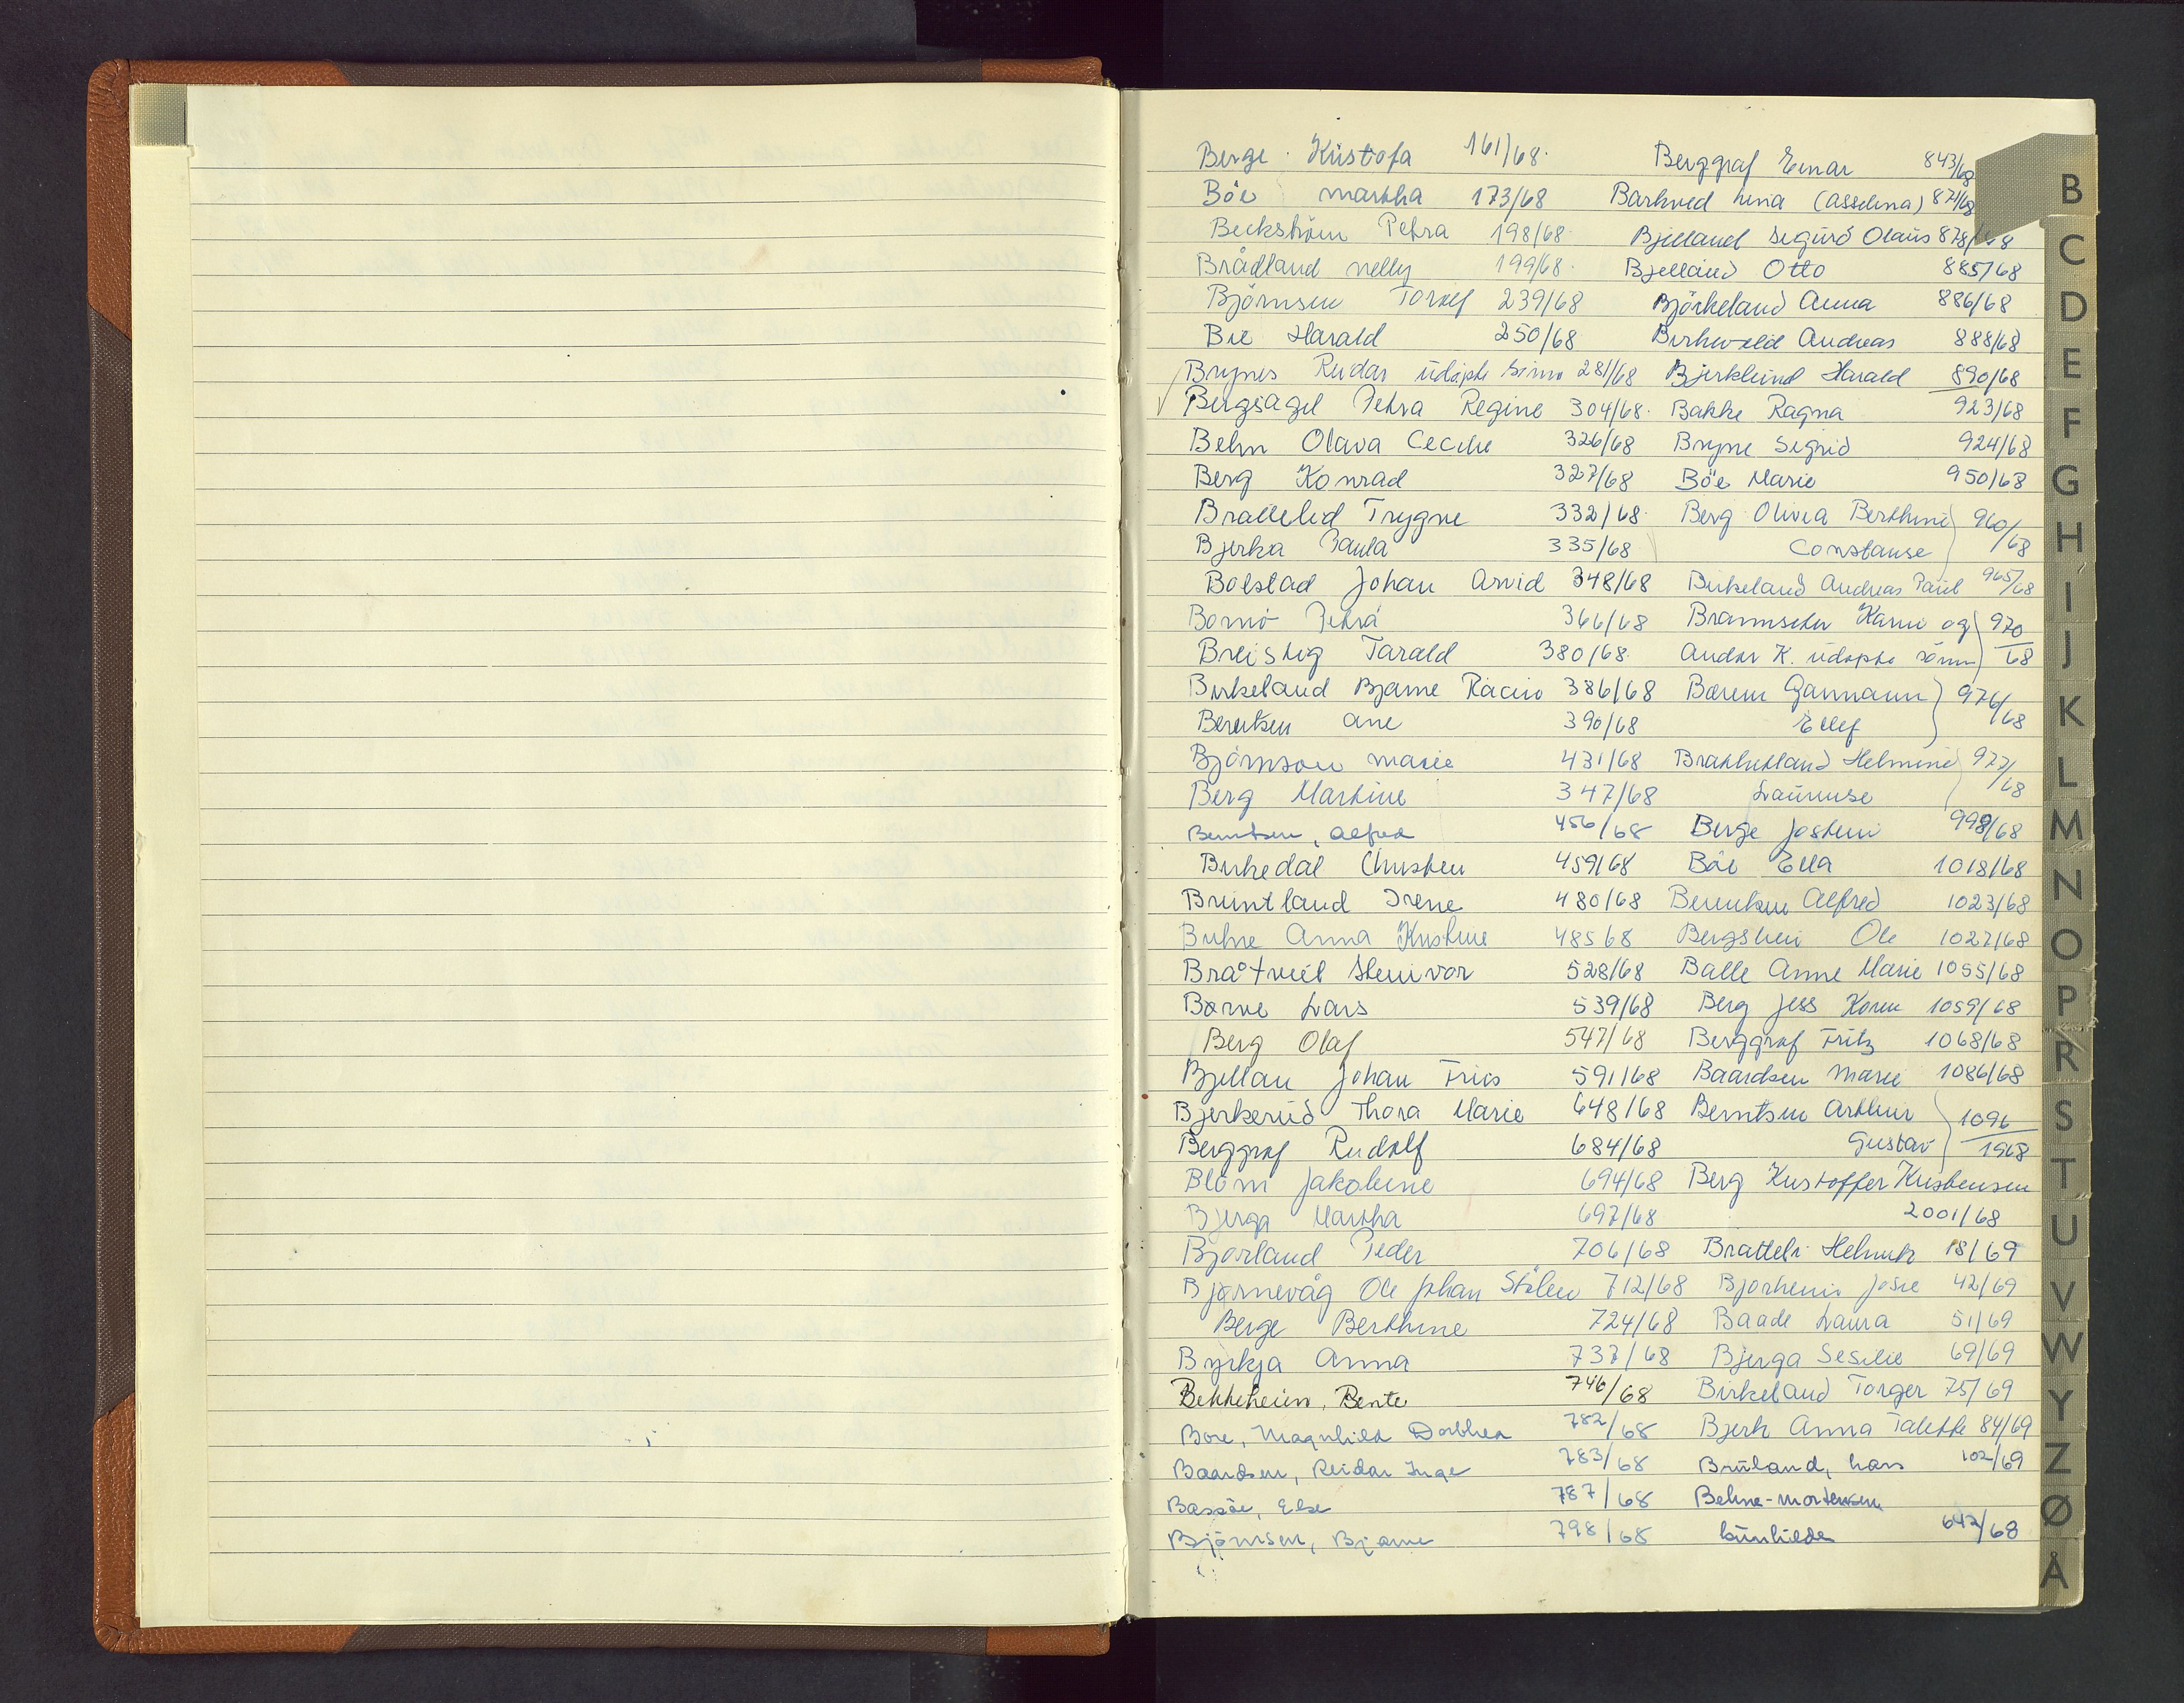 Berge Kristofa 161/68
Böe Martha 173/68
Beckström Petra 198/68
Brådland Nelly 199/68
Björnsen Torolf 239/68
Bie Harald 250/68
Brynes Reidar udöpte 281/68
Bergsagel Petra Regine 304/68
Behn Olava Cecilie 326/68
Berg Konrad 327/68
Brattelid Trygve 332/68
Bjerka Paula 335/68
Bolstad Johan Arvid 348/68
Bornö Petra 366/68
Breistig Tarald 380/68
Birkeland Bjarne 386/68
Berentsen Ane 390/68
Björnson Marie 431/68
Berg Martine 347/68
Berntsen, Alfred 456/68
Birkedal Christen 459/68
Bruntland Irene 480/68
Buhre Anna Kristine 485 68
Bråtveit Steinvor 528/68
Børve Lars 539/68
Berg Olaf 547/68
Bjelland Johan Friis 591/68
Bjerkerud Thora Marie 648/68
Berggraf Rudolf 684/68
Blom Jakobine 694/68
Bjerga Martha 697/68
Bjorland Peder 706/68
Bjørnevåg Ole Johan Stölen 712/68
Berge Berthine 724/68
Byrkja Anna 737/68
Bekkeheien, Bente 746/68
Bore, Magnhild Dorthea 782/68
Baardsen, Reidar Inge 783/68
Bassöe, Else 787/68
Björnsen, Bjarne 798/68
Berggraf Einar 843/68
Barkved Lina (Asselina) 871/68
Bjelland Sigurd Olaus 878/68
Bjelland Otto 885/68
Björkeland Anna 886/68
Andreas 888/68
Bjerklund Harald 890/68
Bakke Ragna 923/68
Bryne Sigrid 924/68
Böe Marie 950/68
Berg Olivia Berthine 960/68
Constanse
Birkeland Andreas Paul 965/68
Karin og 970/68
K. udöpte sönn
Bærem Gunmann 976/68
Ellef
Helmine 977/68
Laurense
Berge Jostein 998/68
Böe Ella 1018/68
Berentsen Alfred 1023/68
Bergstein Ole 1027/68
Balle Anne Marie 1055/68
Berg Jess Koren 1059/68
Berggraf Fritz 1068/68
Baardsen Marie 1086/68
Berntsen Arthur 1096/1968
Gustav
Berg Kristoffer Kristensen
2001/68
Bratteli Helmik 18/69
Josie 42/69
Baade Laura 51/69
Bjerga Sesilie 69/69
Birkeland Torger 75/69
Bjerk Anna Talette 84/69
Bruland, Hans 102/69
Behne-Mortensen
Gunhilda 642/68
B
C
D
E
F
G
H
I
J
K
L
M
N
O
P
R
S
T
U
V
W
Y
Z
Ø
Å